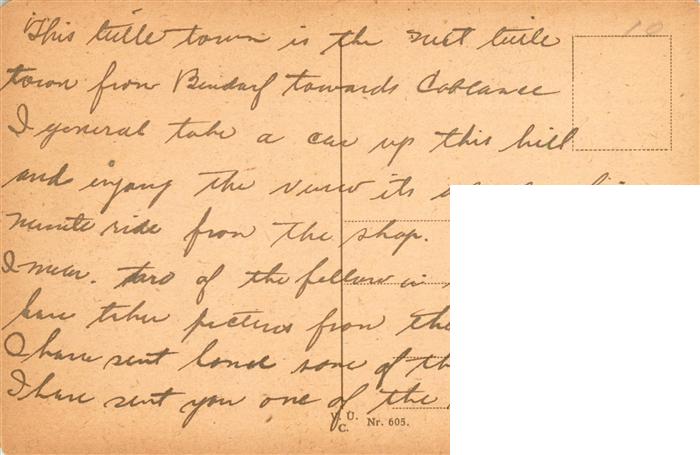 This little town is the next little
town from Bendorf towards Coblance
I general take a car up this hill
and injony the view its a
minute ride from the shop.
I mean. two of the fellow in
have taken pictures from the
I have sent home some of th
I have sent you one of the
V. Ü.
C. Nr. 605.
10